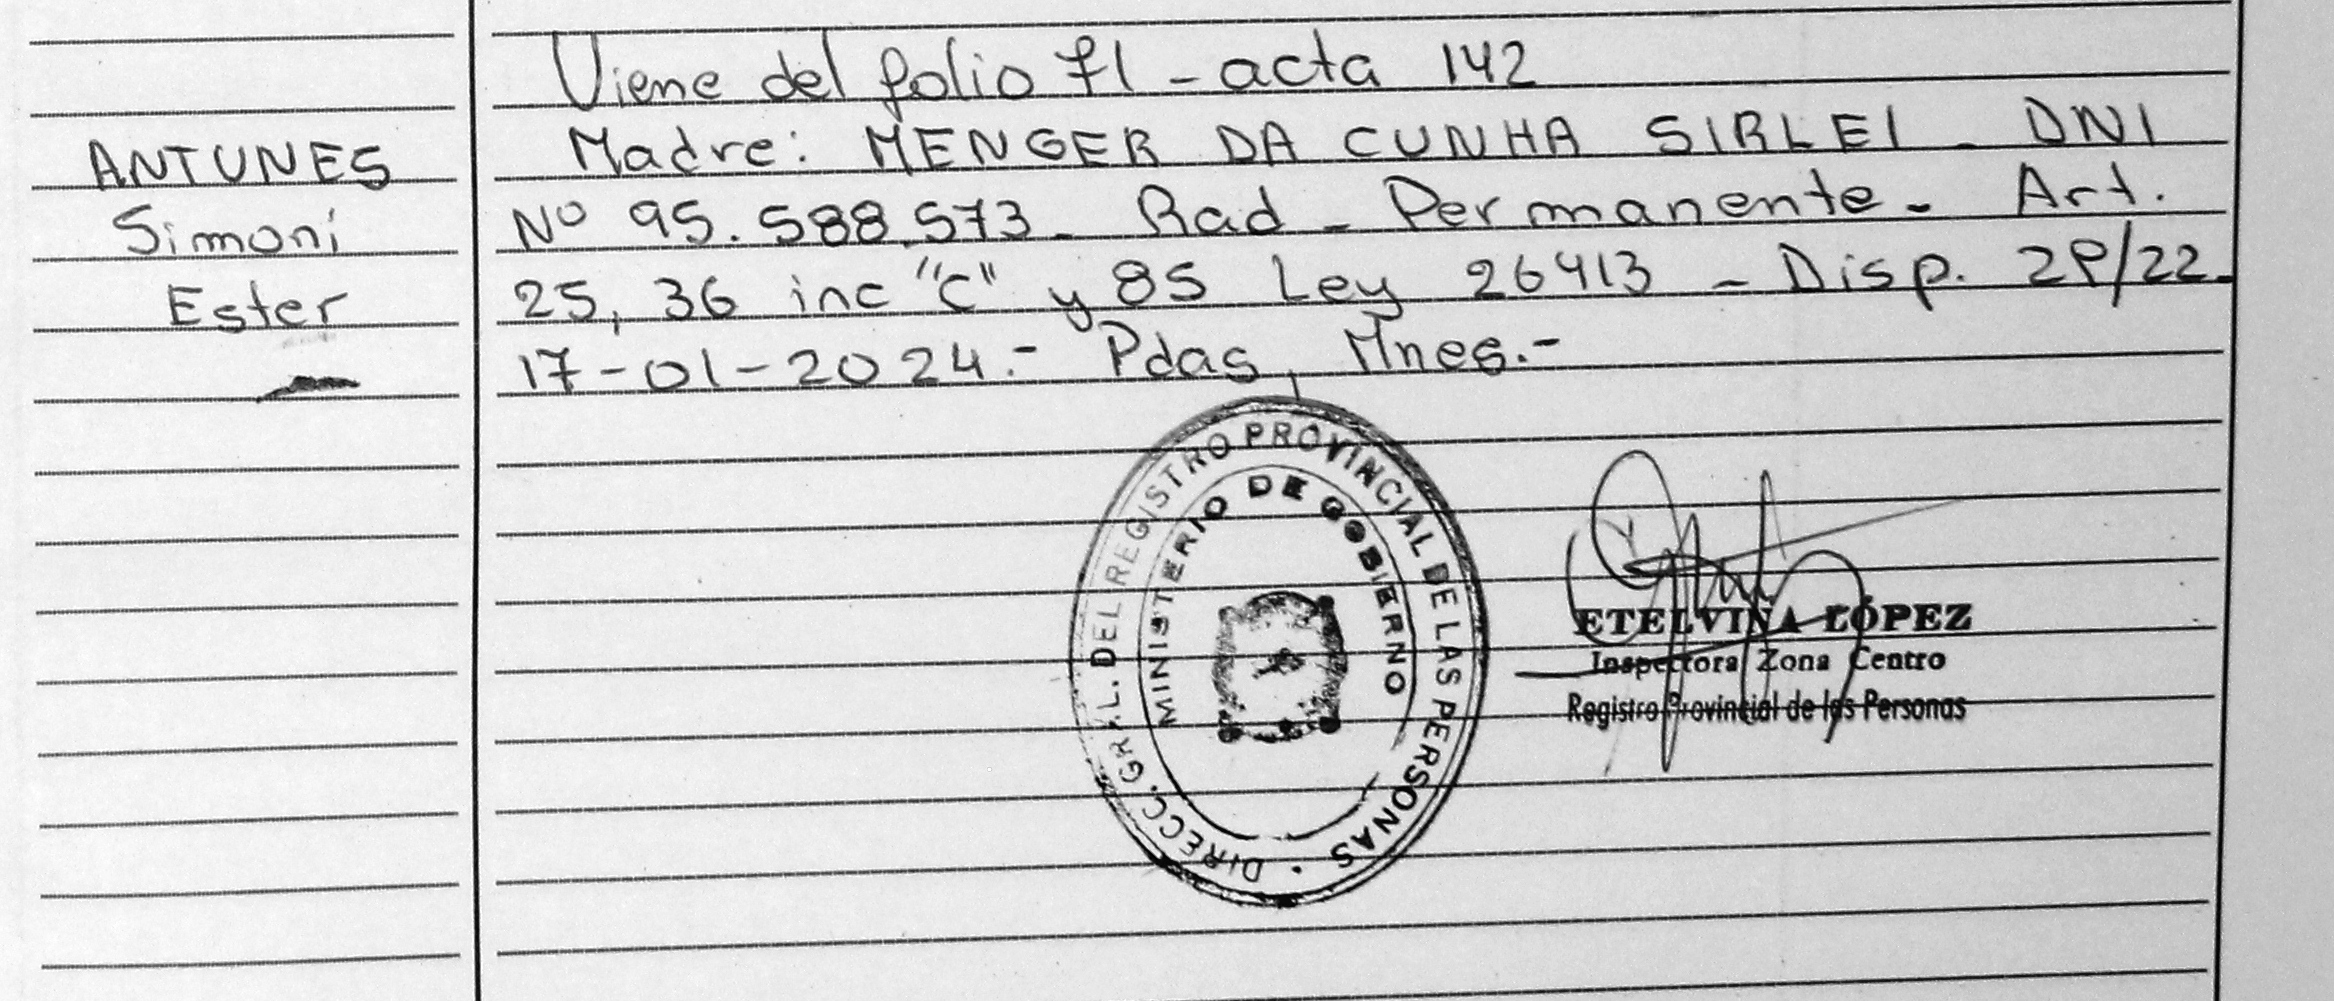 Viene del folio 71 - acta 142
ANTUNES
Simoni
Ester
Madre: MENGER DA CUNHA SIRLEI - DNI
Nº 95.588.573 - Rad - Permanente - Art.
25, 36 inc "C" y 85 Ley 26413 - Disp. 29/22-
17-01-2024.- Pdas, Mnes.-
DIRECC. GRAL. DEL REGISTRO PROVINCIAL DE LAS PERSONAS
MINISTERIO DE GOBIERNO
ETELVINA LÓPEZ
Inspectora Zona Centro
Registro Provincial de las Personas